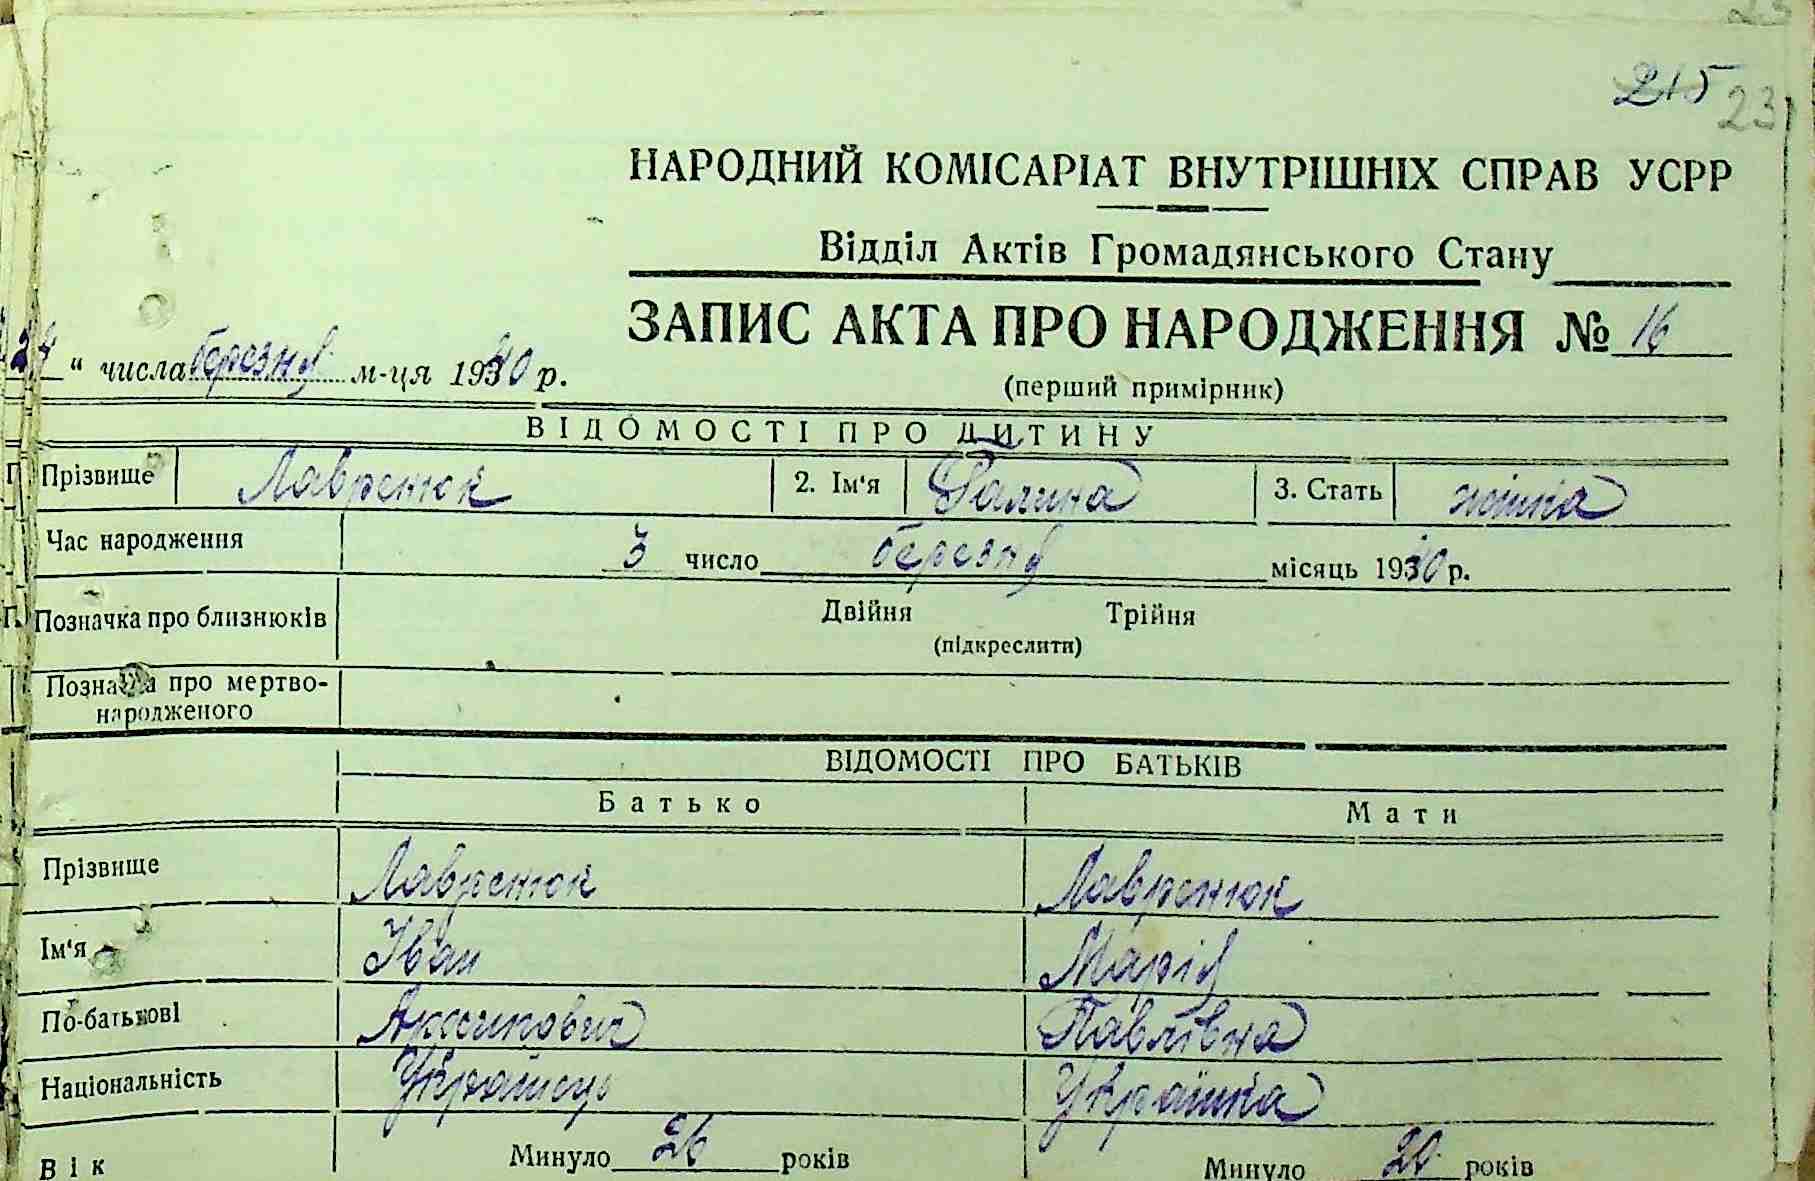 215
23
НАРОДНИЙ КОМІСАРІАТ ВНУТРІШНІХ СПРАВ УСРР
Відділ Актів Громадянського Стану
ЗАПИС АКТА ПРО НАРОДЖЕННЯ № 16
" числа березня м-ця 1940 р.
(перший примірник)
ВІДОМОСТІ ПРО ДИТИНУ
Прізвище Лавренюк 2. Ім'я Галина 3. Стать жінка
Час народження 3 число березня місяць 1940 р.
Позначка про близнюків Двійня Трійня
(підкреслити)
Позначка про мертво-
народженого
ВІДОМОСТІ ПРО БАТЬКІВ
Батько Мати
Прізвище Лавренюк Лавренюк
Ім'я Іван Марія
По-батькові Павлівна
Національність Українець Українка
Вік Минуло 26 років Минуло 20 років